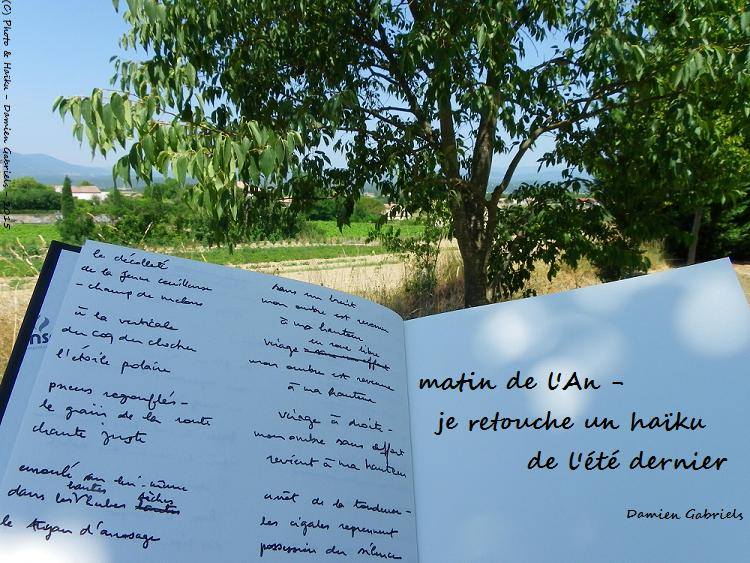 (C) Photo & Haïku - Damien Gabriels 2015
le décolleté
de la jeune cueilleuse
- champ de melons
à la verticale
du coq du clocher
l'étoile polaire
pneus regonflés -
le grain de la route
chante juste
enroulé sur lui-même
hautes sèches
dans les herbes hautes
le tuyau d'arrosage
sans un bruit
mon ombre est revenue
à ma hauteur
en roue libre
virage
mon ombre est revenue
à ma hauteur
virage à droite -
mon ombre sans effort
revient à ma hauteur
arrêt de la tondeuse -
les cigales reprennent
possession du silence
matin de l'An -
je retouche un haïku
de l'été dernier
Damien Gabriels